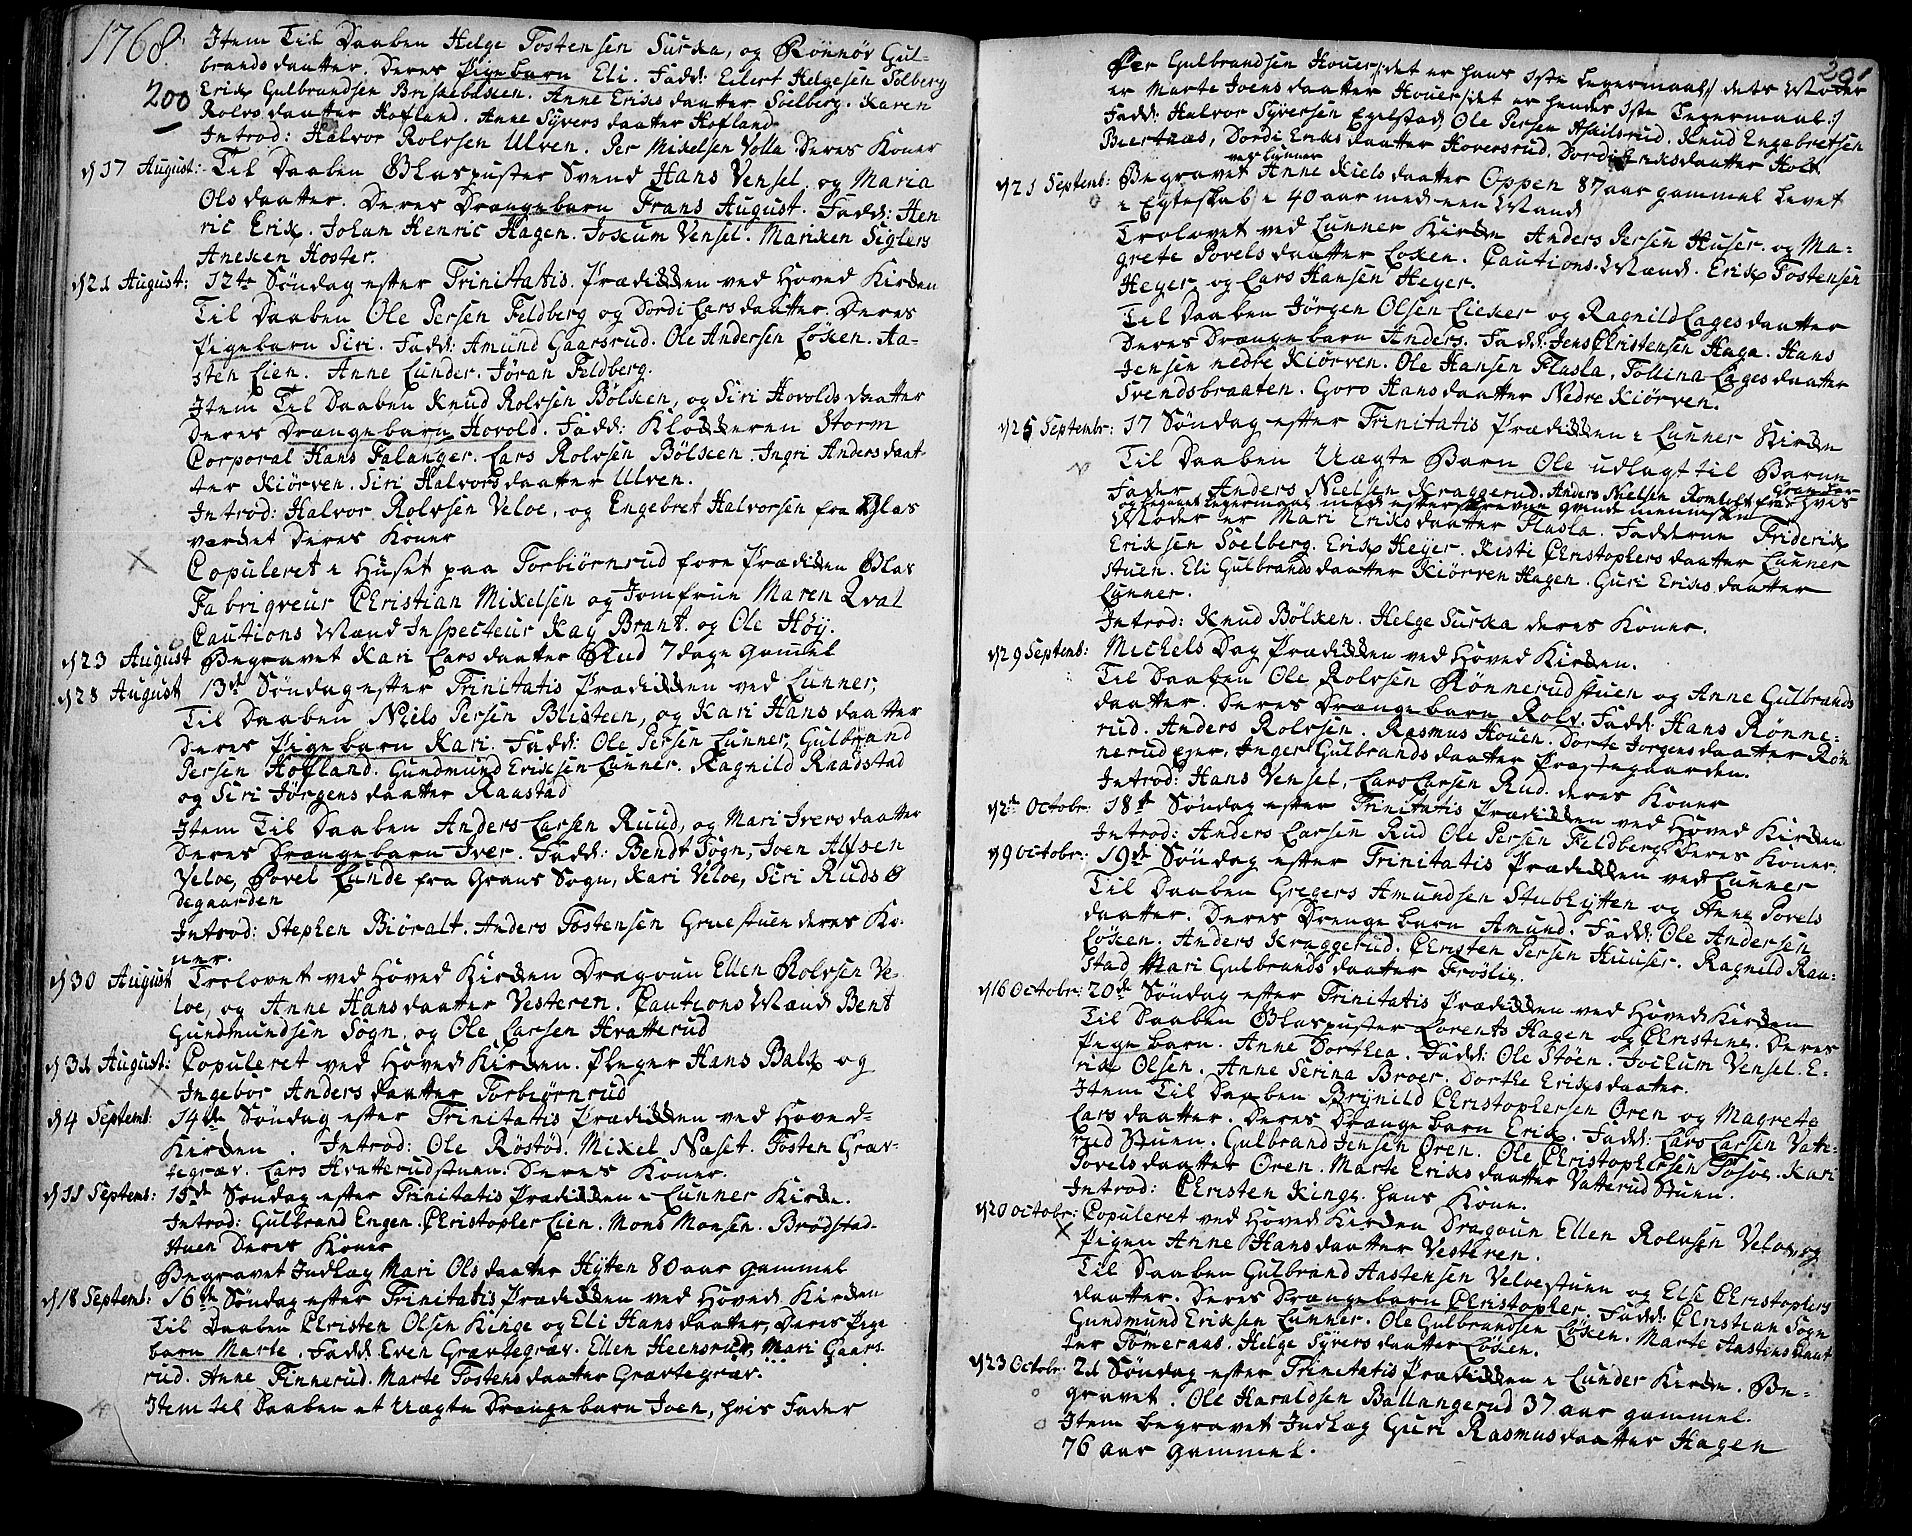 1768
200
Item Til Daaben Helge Tostensen Surka, og Rönnöv Gul-
brands daatter. Deres Pigebarn Eli. Fadd: Eilert Helgesen Solberg
Erik Gulbrandsen Briskebakken. Anne Eriks daatter Soelberg. Karen
Rolvs daatter Hofland. Anne Syvers daatter Hofland
Introd: Halvor Rolvsen Ulven. Per Mikelsen Volla Deres Koner
d 17 August: Til Daaben Blaspuster Svend Hans Vensel, og Maria
Ols daatter. Deres Drængebarn Frans August. Fadd: Hen
ric Erik. Johan Henric Hagen. Jokum Vensel. Mariken Siglers
Aneken Hoster.
d 21 August: 12te Söndag efter Trinitatis. Prædikken ved Hoved Kirken
Til Daaben Ole Persen Feldberg og Dordi Lars daatter. Deres
Pigebarn Siri. Fadd: Amund Gaarsrud. Ole Andersen Löken. Aa-
sten Lien. Anne Lunder. Jöran Feldberg.
Item Til Daaben Knud Rolvsen Bölken, og Siri Hovolds daatter
Deres Drængebarn Hovold. Fadd: Klokkeren Storm
Corporal Hans Falanger. Lars Rolvsen Bölken. Ingri Anders daat-
ter Kiörven. Siri Halvors daatter Ulven.
Introd: Halvor Rolvsen Veloe, og Engebret Halvorsen fra Glas
værket Deres Koner
Copuleret i Huset paa Torbiörnrud fore Prædiken Glas
Fabriqveur Christian Mikelsen og Jomfrue Maren Qval
Cautions Mænd Inspecteur Kay Brant. og Ole Höy.
d 23 August Begravet Kari Lars daatter Rud 7 dage gammel
d 28 August 13de Söndag efter Trinitatis Prædikken ved Lunner,
Til Daaben Niels Persen Blisteen, og Kari Hans daatter
Deres Pigebarn Kari. Fadd: Ole Persen Lunner, Gulbrand
Persen Hofland. Gundmund Eriksen Lunner. Ragnild Raadstad
og Siri Jörgens daatter Raastad
Item Til Daaben Anders Larsen Ruud, og Mari Ivers daatter
Deres Drængebarn Iver. Fadd: Bendt Sogn, Joen Alfsen
Veloe, Povel Lunde fra Grans Sogn, Kari Veloe, Siri Ruds
degaarden
Introd: Stephen Biöralt. Anders Tostensen Gruestuen deres Ko-
ner.
d 30 August Trolovet ved Hoved Kirken Dragoun Ellen Rolvsen Ve-
loe, og Anne Hans daatter Vesteren. Cautions Mænd Bent
Gundmundsen Sogn, og Ole Larsen Hvatterud
d 31 August: Copuleret ved Hoved Kirken. Pleger Hans Balk og
Ingebor Anders daatter Torbiörnrud
d 4 Septemb: 14de Söndag efter Trinitatis Prædikken ved Hoved-
Kirken. Introd: Ole Röstöd. Mikel Næset. Tosten Græv-
tegræv. Lars Hvatterudstuen. Deres Koner.
d 11 Septemb: 15de Söndag efter Trinitatis Prædikken i Lunner Kirke.
Introd: Gulbrand Engen. Christopher Lien. Mons Monsen. Brödstad-
stuen Deres Koner
Begravet Indlæg Mari Ols daatter Hytten 80 aar gammel
d 18 Septemb: 16de Söndag efter Trinitatis Prædikken ved Hoved Kirken
Til Daaben Christen Olsen Kinge og Eli Hans daatter, Deres Pige
barn Marte. Fadd: Even Grævtegræv. Ellen Heensrud, Mari Gaars
rud. Anne Finnerud. Marte Tostens daatter Grævtegræv.
Item til Daaben et Uægte Drængebarn Joen, hvis Fader
201
Per Gulbrandsen Houer /: det er hans 1ste Leyermaal :/ dets Moder
er Marte Joens daatter Houer /: det er hendes 1ste Leyermaal :/
Fadd: Halvor Syversen Egelstad, Ole Persen Askilsrud. Knud Engebretsen
Bærtnæs, Dordi Eriks daatter Hoversrud. Dordi Eriks daatter Holt
ved Lunner
d 21 Septemb: Begravet Anne Niels daatter Oppen 87 aar gammel levet
i Egteskab i 40 aar med een Mand
Trolovet ved Lunner Kirke Anders Persen Huser, og Ma-
grete Povels daatter Loken. Cautions Mænd. Erik Tostensen
Heyer, og Lars Hansen Heyer.
Til Daaben Jörgen Olsen Lieker og Ragnild Lages daatter
Deres Drængebarn Anders. Fadd: Jens Christensen Haga. Hans
Jensen nedre Kiörven. Ole Hansen Flasla, Tollina Lages daatter
Svendsbraaten. Goro Hans daatter Nedre Kiörven.
d 25 Septembr: 17 Söndag efter Trinitatis Prædikken i Lunner Kirke
Til Daaben Uægte Barn Ole udlagt til Barne
Fader Anders Nielsen Kraggerud.
Moder er Mari Eriks daatter Flasla. Fadderne Friderik
Eriksen Soelberg. Erik Heyer. Kisti Christophers daatter Lunner
stuen. Eli Gulbrands daatter Kiörven Hagen. Guri Eriks daatter
Lunner.
Introd: Knud Bölken. Helge Surka deres Koner.
d 29 Septemb: Michels Dag Prædikken ved Hoved Kirken.
Til Daaben Ole Rolvsen Rönnerudstuen og Anne Gulbrands
daatter. Deres Drængebarn Rolv. Fadd: Hans Rönne-
rud. Anders Rolvsen. Rasmus Houen. Dorte Jorgens daatter Rön
nerudeyer, Inger Gulbrands daatter Præstegaarden.
Introd: Hans Vensel, Lars Larsen Rud. deres Koner
d 2de Octobr: 18de Söndag efter Trinitatis Prædikken ved Hoved Kirken
Introd: Anders Larsen Rud Ole Persen Feldberg Deres Koner.
d 9 Octobr: 19de Söndag efter Trinitatis Prædikken ved Lunner
Til Daaben Gregers Amundsen Stubhytten og Anne Povels
daatter. Deres Drængebarn Amund. Fadd: Ole Andersen
Löken. Anders Kraggerud. Christen Persen Huuser. Ragnild Raa-
stad Mari Gulbrands daatter Fröslie.
d 16 Octobr: 20de Söndag efter Trinitatis Prædikken ved Hoved Kirken
Til Daaben Glaspuster Lorents Hagen og Christine. Deres
Pigebarn. Anne Dorthea. Fadd: Ole Stöen. Jochum Vensel. E-
rik Olsen. Anne Serina Broer. Dorthe Eriks daatter.
Item Til Daaben Brynild Christophersen Oren og Magrete
Lars daatter. Deres Drængebarn Erik. Fadd: Lars Larsen Vatte-
rud Stuen. Gulbrand Jensen Oren. Ole Christophersen Tosoe. Kari
Povels daatter Oren. Marte Eriks daatter Vatterud Stuen.
Introd: Christen Kinge. hans Kone.
d 20 Octobr: Copuleret ved Hoved Kirken Dragoun Ellen Rolvsen Veloe, og
Pigen Anne Hans daatter Vesteren.
Til Daaben Gulbrand Aastensen Velvestuen og Elsi Christophers
daatter. Deres Drængebarn Christopher. Fadd: Christian Sogn
Gundmund Eriksen Lunner. Ole Gulbrandsen Löken. Marte Aastens daat
ter Tömeraas. Helge Syvers daatter Löken.
d 23 Octobr: 21 Söndag efter Trinitatis Prædikken i Lunder Kirke. Be-
gravet. Ole Haraldsen Ballangerud 37 aar gammel.
Item begravet Indlæg Guri Rasmus daatter Hagen
76 aar gammel.